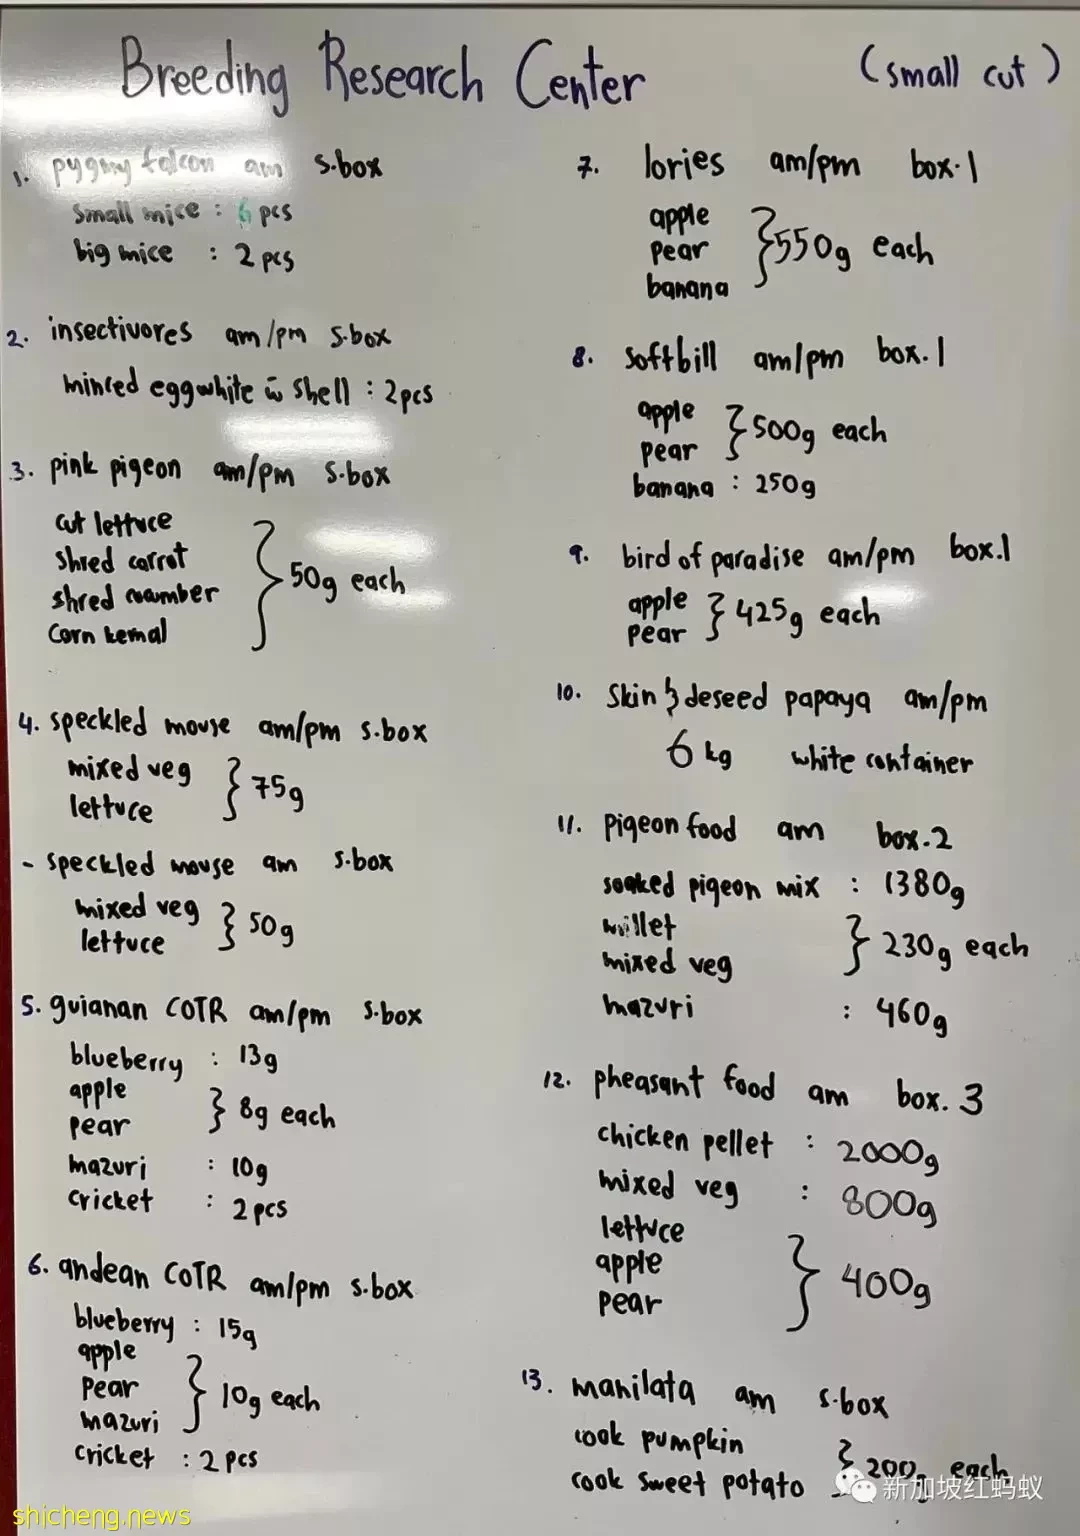 Breeding Research Center (small cut)
1. pygmy falcon am s.box
small mice : 6 pcs
big mice : 2 pcs
2. insectivores am/pm s.box
minced eggwhite w̄ shell : 2pcs
3. pink pigeon am/pm s.box
cut lettuce
shred carrot
shred cucumber
corn kernal
50g each
4. speckled mouse am/pm s.box
mixed veg
lettuce
75g
- speckled mouse am s.box
mixed veg
lettuce
50g
5. guianan COTR am/pm s.box
blueberry : 13g
apple
pear
8g each
mazuri : 10g
cricket : 2pcs
6. andean COTR am/pm s.box
blueberry : 15g
apple
pear
mazuri
10g each
cricket : 2 pcs
7. lories am/pm box.1
apple
pear
banana
550g each
8. softbill am/pm box.1
apple
pear
500g each
banana : 250g
9. bird of paradise am/pm box.1
apple
pear
425g each
10. skin & deseed papaya am/pm
6 kg white container
11. pigeon food am box.2
soaked pigeon mix : 1380g
millet
mixed veg
230g each
mazuri : 460g
12. pheasant food am box.3
chicken pellet : 2000g
mixed veg : 800g
lettuce
apple
pear
400g
13. manilata am s.box
cook pumpkin
cook sweet potato
200g each
新加坡红蚂蚁
shicheng.news